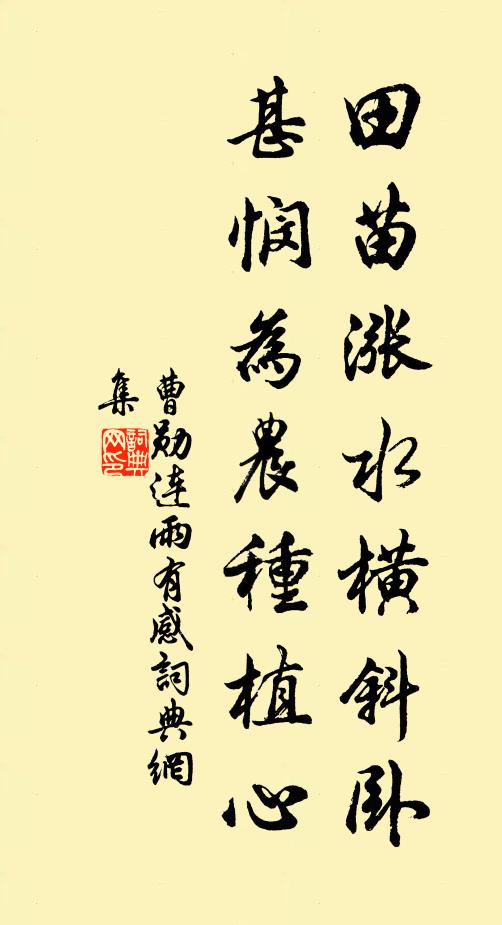 田苗漲水橫斜臥
甚憫為農種植心
曹勛連雨有感詞典網
集
詞典
网印